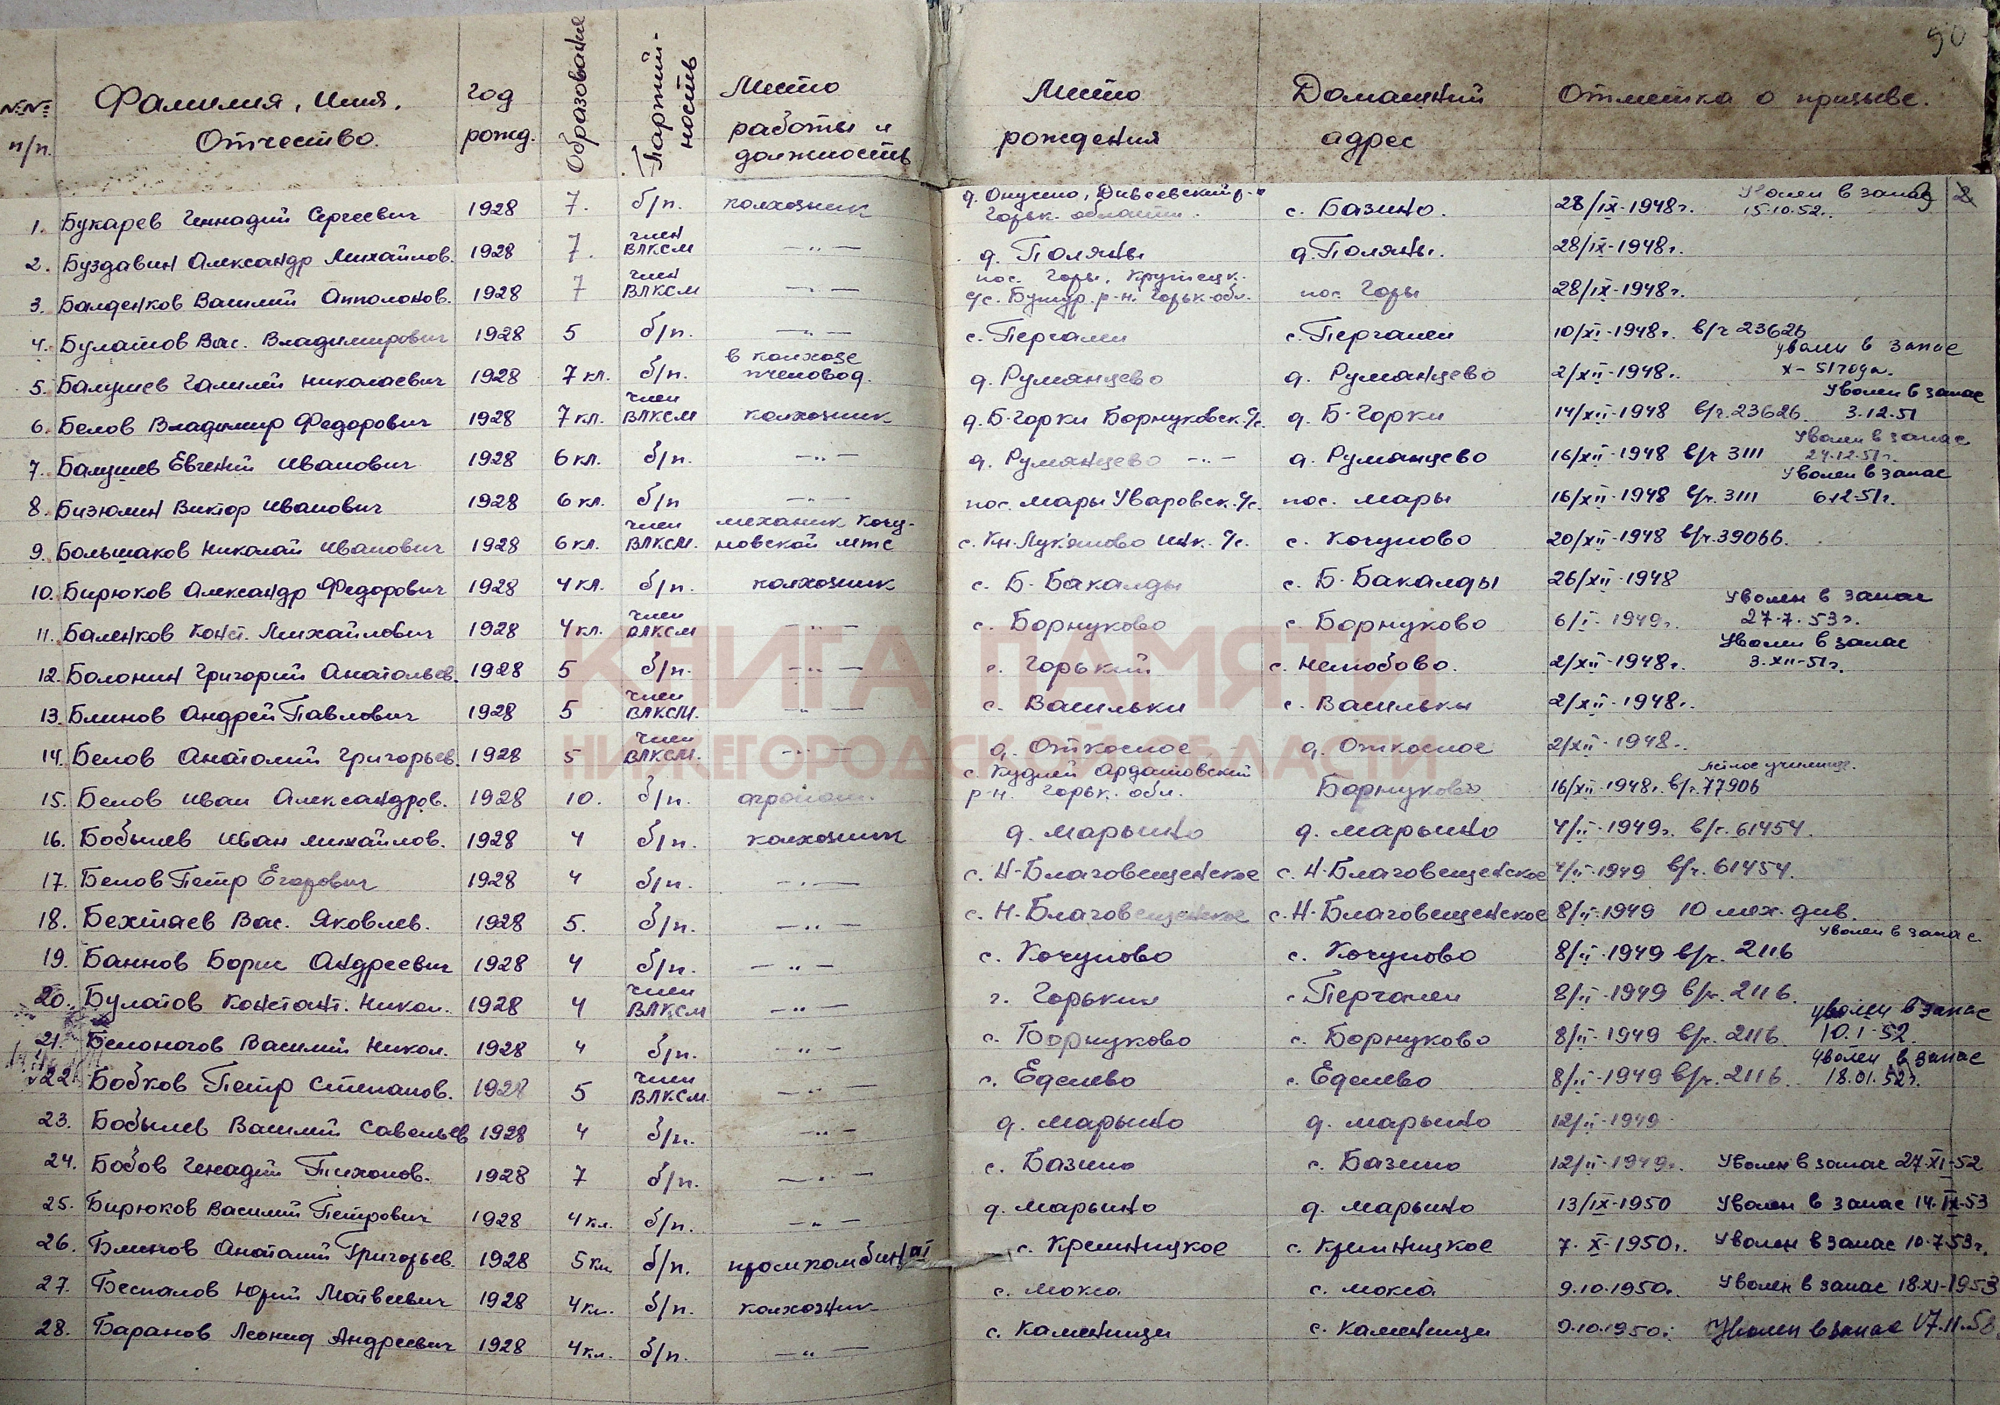 90
№№ п/п. Фамилия, имя, Отчество. год рожд. Образование Партийность Место работы и должность Место рождения Домашний адрес Отметка о призыве.
1. Букарев Геннадий Сергеевич 1928 7. б/п. колхозник д. Онучино, Дивеевский р-н Горьк. области. с. Базино. 28/IX-1948г. Уволен в запас 15.10.52. 2
2. Буздавин Александр Михайлов. 1928 7. член ВЛКСМ —"— д. Поляны д. Поляны. 28/IX-1948г.
3. Балденков Василий Апполонов. 1928 7 член ВЛКСМ —"— пос. Горы, Крутецк. с/с. Бутур. р-н. Горьк-обл. пос. Горы 28/IX-1948г.
4. Булатов Вас. Владимирович 1928 5 б/п. —"— с. Пергалеи с. Пергалеи 10/XI-1948г. в/ч 23626
5. Балушев Галилей Николаевич 1928 7 кл. б/п. в колхозе пчеловод. д. Румянцево д. Румянцево 2/XII-1948г. уволен в запас X-51 года.
6. Белов Владимир Федорович 1928 7 кл. член ВЛКСМ колхозник д. Б-Горки Борнуковск. с/с. д. Б-Горки 14/XII-1948 в/ч. 23626 Уволен в запас 3.12.51
7. Балушев Евгений Иванович 1928 6 кл. б/п. —"— д. Румянцево —"— д. Румянцево 16/XII-1948 в/ч 3111 Уволен в запас 24.12.51г.
8. Бизюлин Виктор Иванович 1928 6 кл. б/п —"— пос. Мары Уваровск. с/с. пос. Мары 16/XII-1948 в/ч. 3111 Уволен в запас 6-12-51г.
9. Большаков Николай Иванович 1928 6 кл. член ВЛКСМ. механик Кочуновской МТС с. Кн-Лукьяново Ичк. с/с. с. Кочуново 20/XII-1948 в/ч. 39066.
10. Бирюков Александр Федорович 1928 4 кл. б/п. колхозник с. Б-Бакалды с. Б-Бакалды 26/XII-1948
11. Баленков Конст. Михайлович 1928 4 кл. член ВЛКСМ —"— с. Борнуково с. Борнуково 6/I-1949г. Уволен в запас 27.7.53г.
12. Болонин Григорий Анатольев. 1928 5 б/п. —"— г. Горький с. Нелюбово. 2/XII-1948г. Уволен в запас 3.XII-51г.
13. Блинов Андрей Павлович 1928 5 член ВЛКСМ. —"— с. Васильки с. Васильки 2/XII-1948г.
14. Белов Анатолий Григорьев. 1928 5 член ВЛКСМ. —"— д. Откосное д. Откосное 2/XII-1948г.
15. Белов Иван Александров. 1928 10. б/п. агроном. с. Кудлей Ардатовский р-н. Горьк. обл. Борнуково 16/XII-1948г. в/ч. 77906 летное училище.
16. Бобылев Иван Михайлов. 1928 4 б/п. колхозник д. Марьино д. Марьино 4/II-1949г. в/ч. 61454.
17. Белов Петр Егорович 1928 4 б/п. —"— с. Н-Благовещенское с. Н-Благовещенское 4/II-1949 в/ч. 61454.
18. Бехтяев Вас. Яковлев. 1928 5. б/п. —"— с. Н-Благовещенское с. Н-Благовещенское 8/II-1949 10 мех. див.
19. Баннов Борис Андреевич 1928 4 б/п. —"— с. Кочуново с. Кочуново 8/II-1949 в/ч. 2116 Уволен в запас
20. Булатов Констант. Никол. 1928 4 член ВЛКСМ —"— г. Горький с. Пергалеи 8/II-1949 в/ч. 2116.
21. Белоногов Василий Никол. 1928 4 б/п. —"— с. Борнуково с. Борнуково 8/II-1949 в/ч. 2116. уволен в запас 10.1-52.
22. Бобков Петр Степанов. 1928 5 член ВЛКСМ. —"— с. Еделево с. Еделево 8/II-1949 в/ч. 2116. Уволен в запас 18.01.52г.
23. Бобылев Василий Савельев 1928 4 б/п. —"— д. Марьино д. Марьино 12/II-1949
24. Бобов Генадий Тихонов. 1928 7 б/п. —"— с. Базино с. Базино 12/II-1949г. Уволен в запас 27.XI-52
25. Бирюков Василий Петрович 1928 4 кл. б/п. —"— д. Марьино д. Марьино 13/IX-1950 Уволен в запас 14.IX-53
26. Блинов Анатолий Григорьев. 1928 5 кл. б/п. промкомбинат с. Кременицкое с. Кременицкое 7.X-1950г. Уволен в запас 10-7-53г.
27. Беспалов Юрий Матвеевич 1928 4 кл. б/п. колхозник с. Мокса с. Мокса 9.10.1950г. Уволен в запас 18.XI-1953
28. Баранов Леонид Андреевич 1928 4 кл. б/п. —"— с. Каменищи с. Каменищи 9.10.1950г. Уволен в запас 17.11.53
КНИГА ПАМЯТИ
НИЖЕГОРОДСКОЙ ОБЛАСТИ